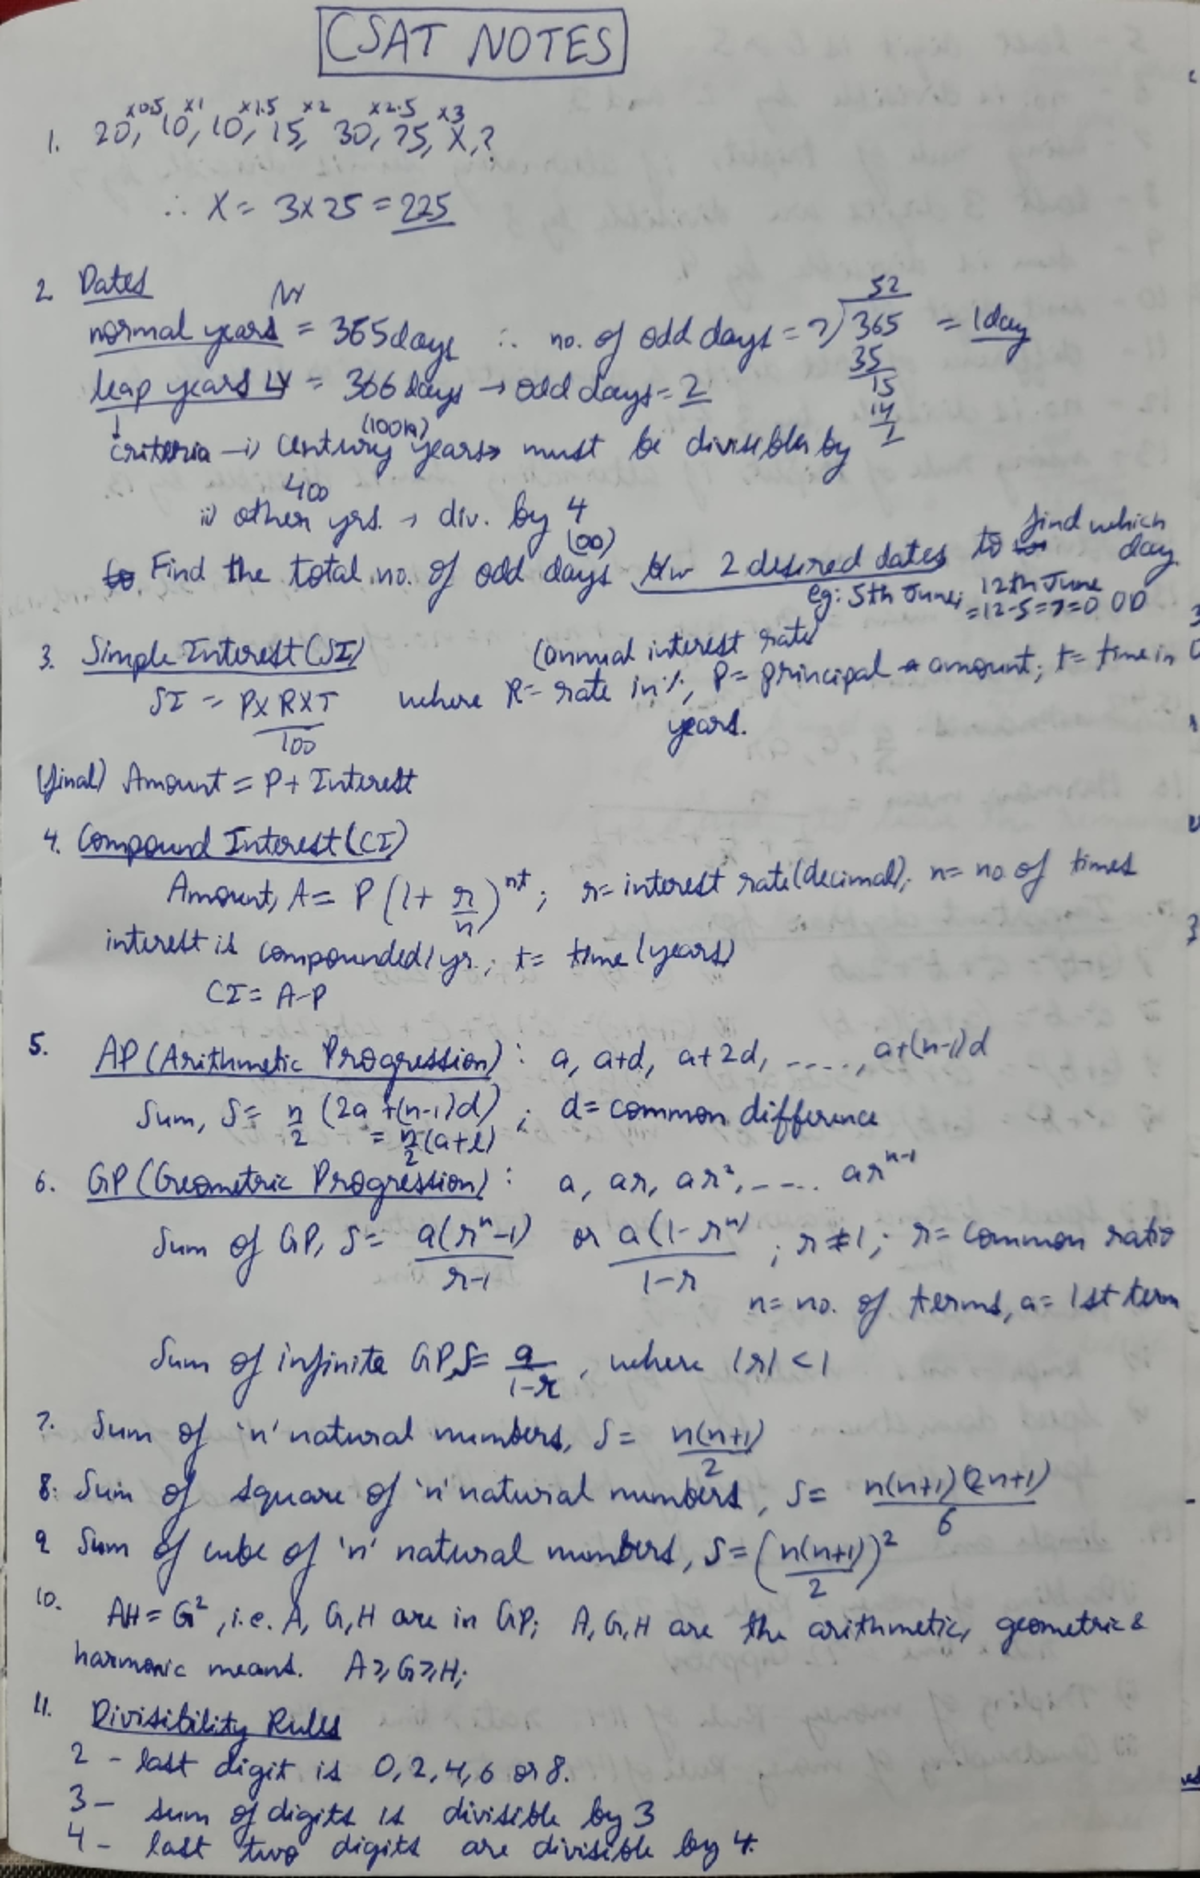 CSAT NOTES
x0.5 x1 x1.5 x2 x2.5 x3
1. 20, 10, 10, 15, 30, 75, X, ?
∴ X = 3x25 = 225
2. Dates
NY 52
normal years = 365 days ∴ no. of odd days = 7)365 = 1 day
35
leap years LY = 366 days → odd days = 2 15
14
1
(100th)
criteria – i) Century years → must be divisible by
400
ii) other yrs. → div. by 4
(OD) find which
Find the total no. of odd days b/w 2 desired dates to day
eg: 5th June, 12th June
= 12-5 = 7 = 0 OD
3. Simple Interest (SI) (annual interest rate)
SI = PxRxT where R = rate in %, P = principal amount; t = time in
100 years.
(final) Amount = P + Interest
4. Compound Interest (CI)
Amount, A = P(1 + r/n)^nt ; r = interest rate (decimal); n = no. of times
interest is compounded/yr.; t = time (years)
CI = A-P
5. AP (Arithmetic Progression) : a, a+d, a+2d, ....., a+(n-1)d
Sum, S = n/2 (2a + (n-1)d) ; d = common difference
= n/2 (a+l)
6. GP (Geometric Progression) : a, ar, ar², ---.. ar^n-1
Sum of GP, S = a(r^n-1)/r-1 or a(1-r^n)/1-r ; r ≠ 1; r = common ratio
n = no. of terms, a = 1st term
Sum of infinite GP, S = a/1-r , where |r| < 1
7. Sum of 'n' natural numbers, S = n(n+1)/2
8. Sum of square of 'n' natural numbers, S = n(n+1)(2n+1)/6
9 Sum of cube of 'n' natural numbers, S = (n(n+1)/2)²
10. AH = G², i.e. A, G, H are in GP; A, G, H are the arithmetic, geometric &
harmonic means. A ≥ G ≥ H;
11. Divisibility Rules
2 - last digit is 0, 2, 4, 6 or 8.
3 - sum of digits is divisible by 3
4 - last two digits are divisible by 4.